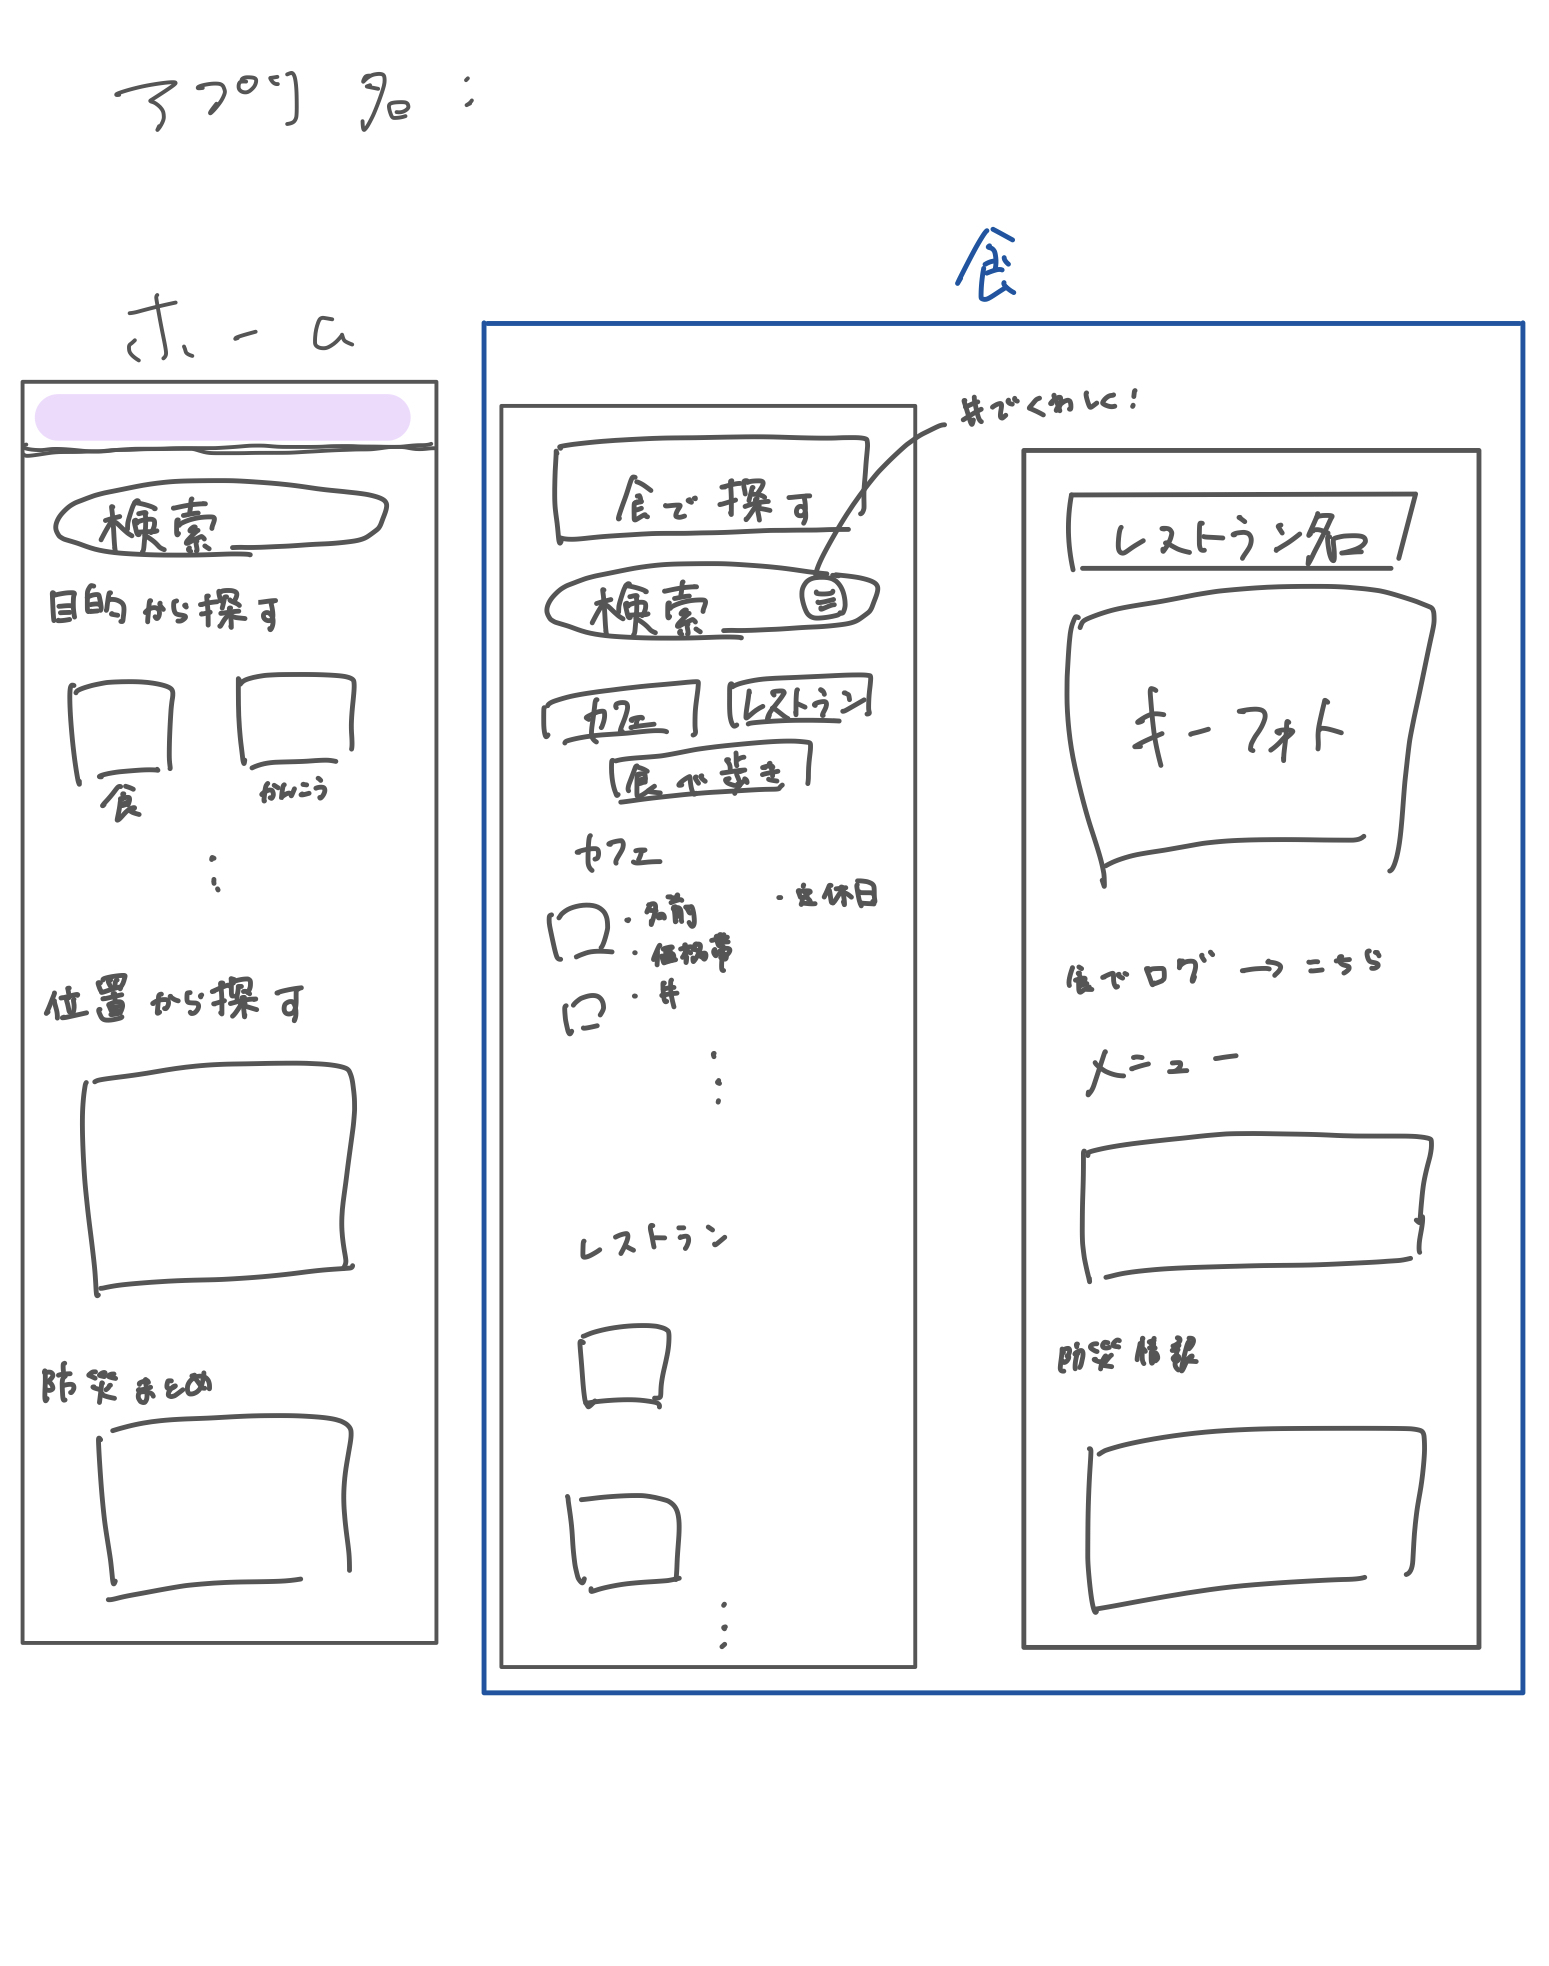 アプリ名:
ホーム
検索
目的から探す
食
かんこう
位置から探す
防災まとめ
食
#でくわしく!
食で探す
検索
カフェ
レストラン
食べ歩き
カフェ
・名前
・定休日
・価格帯
・#
レストラン
レストラン名
キーフォト
食でログ→こちら
メニュー
防災情報